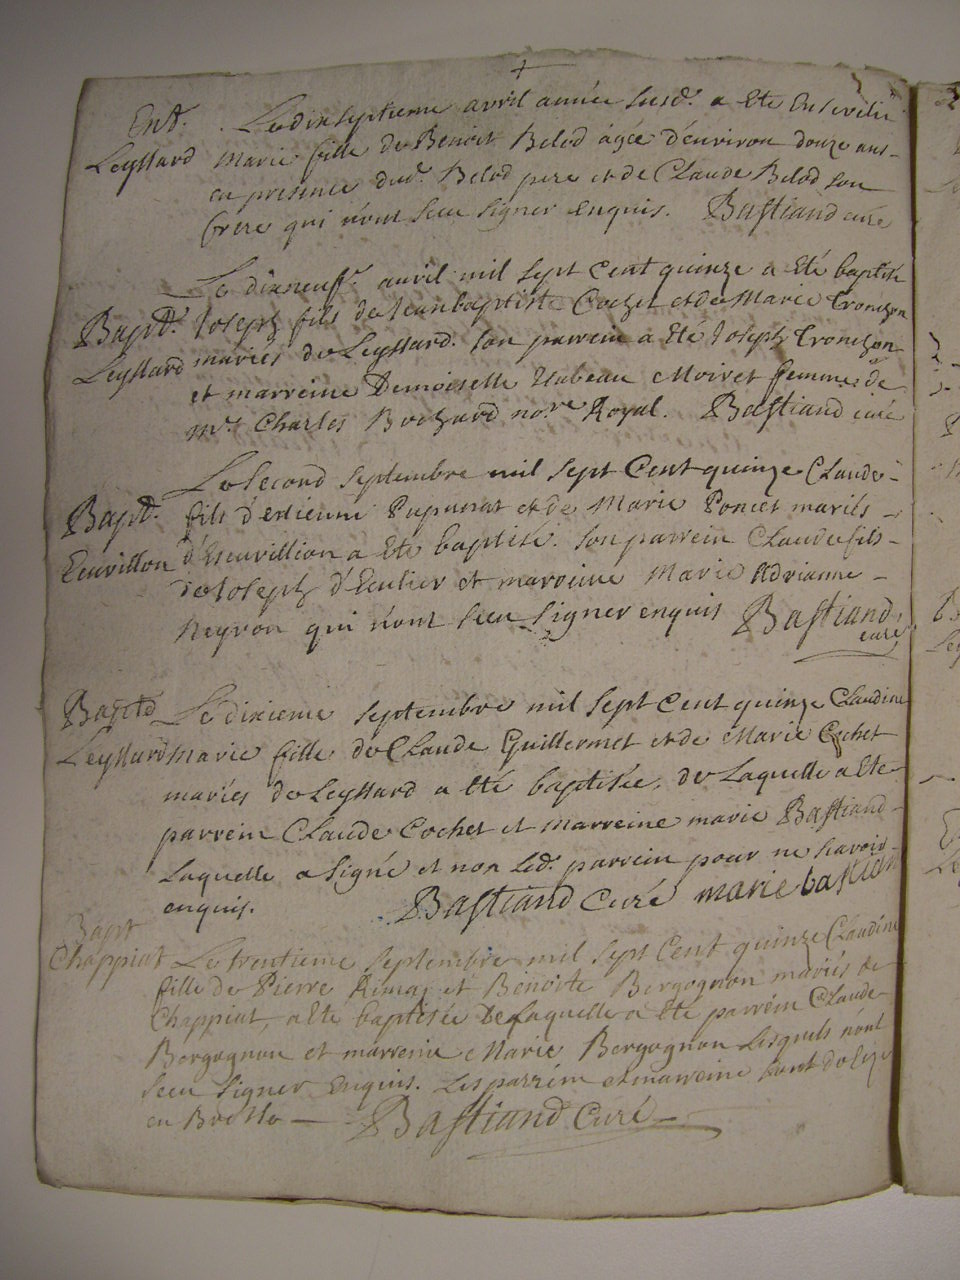 Ent. Le dixseptieme avril année susd. a Ete Enseveli
Leyssard Marie fille de Benoit Belod agée d'environ douze ans
en presence dud. Belod pere et de Claude Belod son
frere qui n'ont sceu signer enquis. Bastiand curé
Le dixneuf.e avril mil sept cent quinze a Eté baptisé
Bapt. Joseph fils de Jean baptiste Cochet et de Marie Tronchon
Leyssard mariés de Leyssard. son parrein a Eté Joseph Tronchon
et marreine Demoiselle Ysabeau Moiret femme de
m.r Charles Brochard no.re Royal. Bastiand curé
Le second septembre mil sept Cent quinze Claude
Bapt. fils d'Estienne et de Marie Poncet mariés
Ecuvillon d'Escuvillion a Ete baptisé. son parrein Claude fils
de Joseph d'Eculier et marreine Marie Adrianne
Neyron qui n'ont sceu signer enquis Bastiand
curé
Bapt. Le dixieme septembre mil sept Cent quinze Claudine
Leyssard marie fille de Claude Guillermet et de Marie Cochet
mariés de Leyssard a été baptisée, de Laquelle a Ete
parrein Claude Cochet et marreine marie Bastiand
Laquelle a signé et non led. parrein pour ne scavoir
enquis. Bastiand Curé marie bastian
Bapt
Chappiat Le trentieme septembre mil sept Cent quinze Claudine
fille de Pierre et Benoite Bergognon mariés de
Chappiat, a Ete baptisée De Laquelle a Ete parrein Claude
Bergognon et marreine Marie Bergognon Lesquels n'ont
sceu signer Enquis. Les parrein et marreine sont de
en Bresse — Bastiand Curé